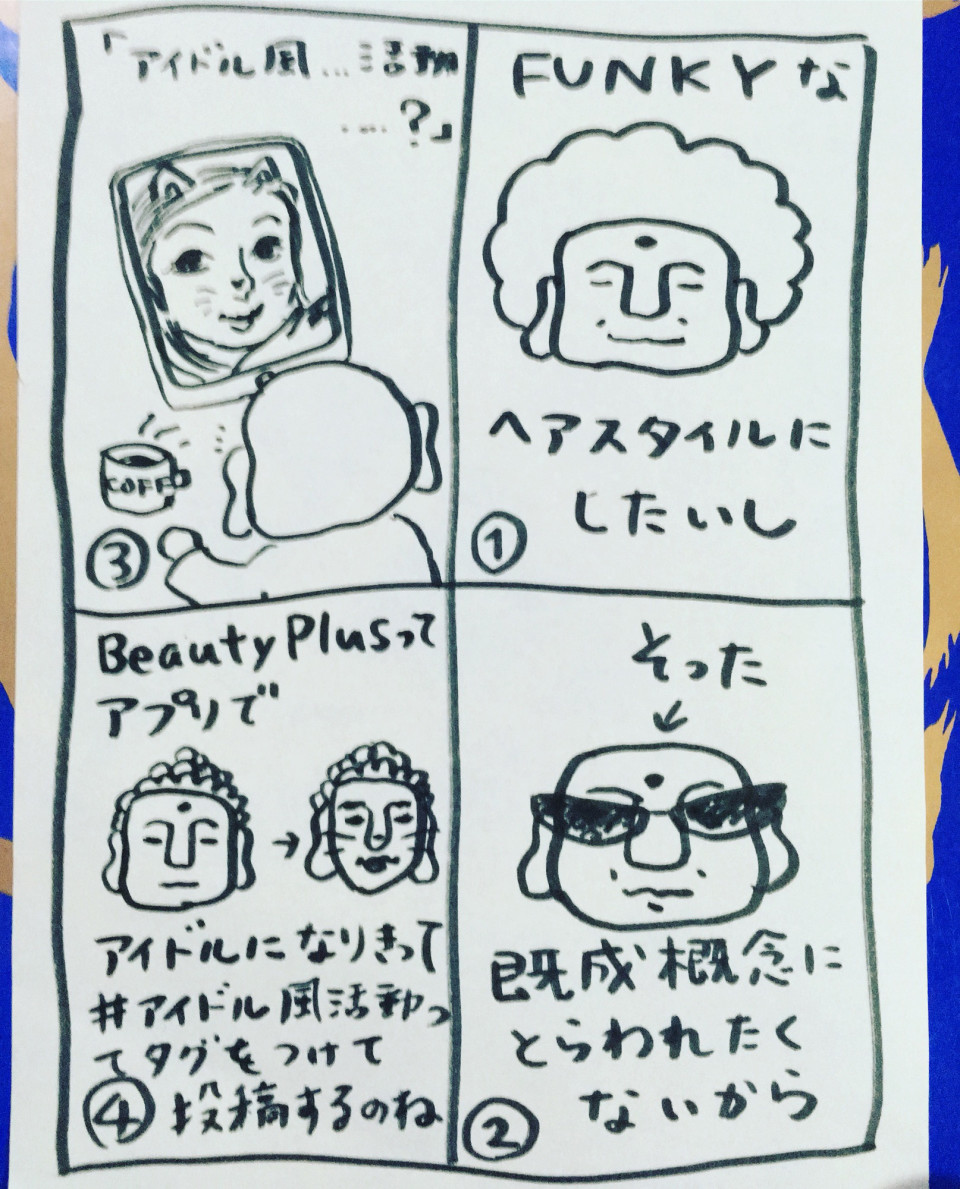 FUNKYな
ヘアスタイルに
したいし
①
そった
↓
既成概念に
とらわれたく
ないから
②
「アイドル風…活動
……?」
COFF
③
BeautyPlusって
アプリで
→
アイドルになりきって
#アイドル風活動っ
てタグをつけて
④投稿するのね